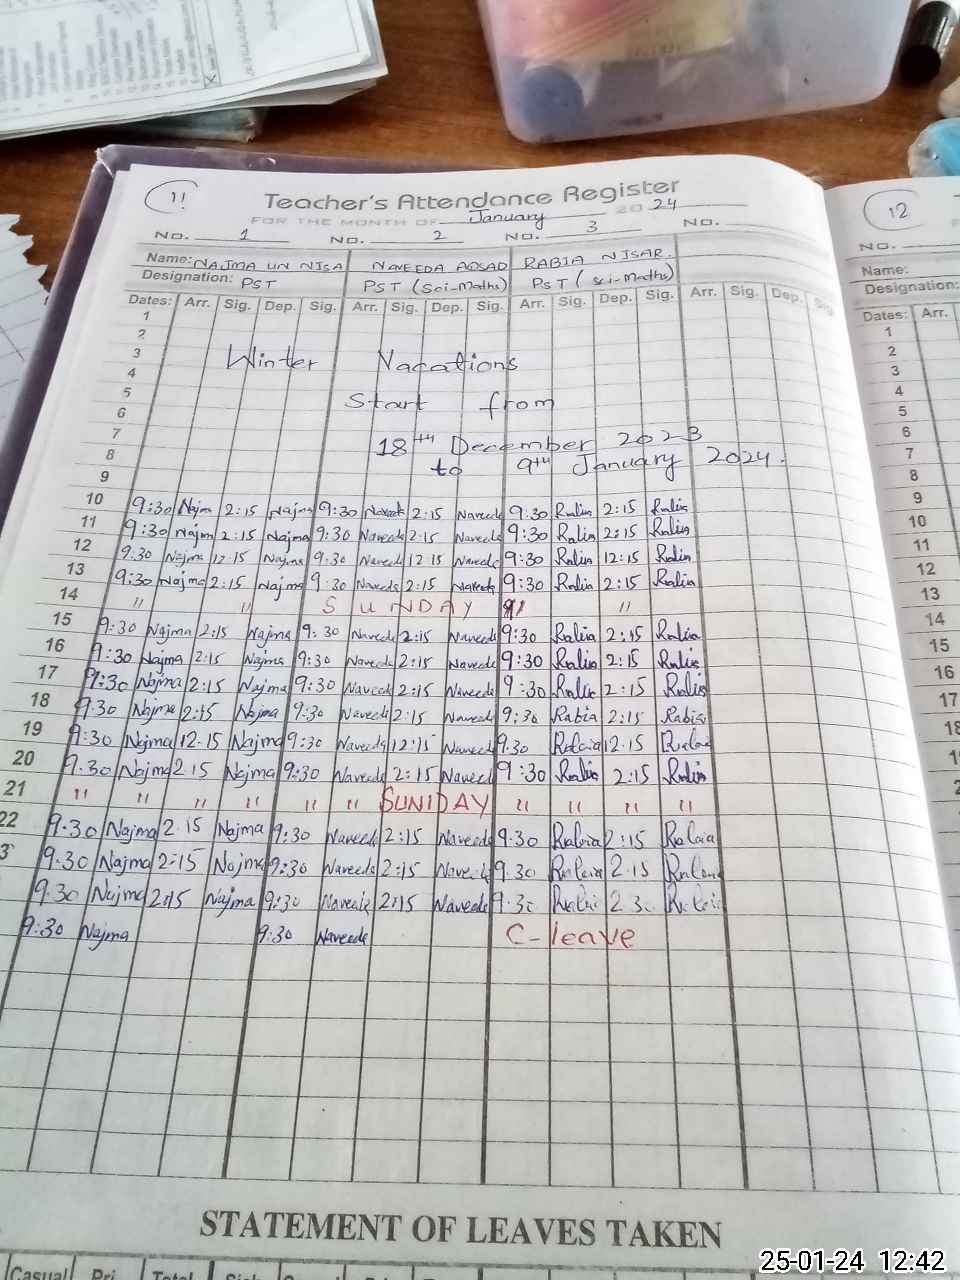 11
Teacher's Attendance Register
FOR THE MONTH OF January 2024
No. 1 No. 2 No. 3 No.
Name: NAJMA UN NISA NAVEEDA RABIA NISAR.
Designation: PST PST (Sci-Maths) PST (sci-Maths)
Dates: Arr. Sig. Dep. Sig. Arr. Sig. Dep. Sig. Arr. Sig. Dep. Sig. Arr. Sig. Dep. Sig
1
2
3 Winter Vacations
4
5 Start from
6
7 18th December 2023
8 to 9th January 2024.
9
10 9:30 Najm 2:15 Najma 9:30 2:15 Naveeda 9:30 Rabia 2:15 Rabia
11 9:30 Najma 2:15 Najma 9:30 Naveeda 2:15 Naveeda 9:30 Rabia 2:15 Rabia
12 9:30 Najma 12:15 Najma 9:30 Naveeda 12 15 Naveeda 9:30 Rabia 12:15 Rabia
13 9:30 Najma 2:15 Najma 9:30 Naveeda 2:15 Naveeda 9:30 Rabia 2:15 Rabia
14 " " SUNDAY " "
15 9:30 Najma 2:15 Najma 9:30 Naveeda 2:15 Naveeda 9:30 Rabia 2:15 Rabia
16 9:30 Najma 2:15 Najma 9:30 Naveeda 2:15 Naveeda 9:30 Rabia 2:15 Rabia
17 9:30 Najma 2:15 Najma 9:30 Naveeda 2:15 Naveeda 9:30 Rabia 2:15 Rabia
18 9:30 Najma 2:15 Najma 9:30 Naveeda 2:15 Naveeda 9:30 Rabia 2:15 Rabia
19 9:30 Najma 12.15 Najma 9:30 Naveeda 12:15 Naveeda 9.30 Rabia 12.15 Rabia
20 9.30 Najma 2 15 Najma 9:30 Naveeda 2:15 Naveed 9:30 Rabia 2:15 Rabia
21 " " " " " " SUNDAY " " " "
22 9.30 Najma 2.15 Najma 9:30 Naveeda 2:15 Naveeda 9.30 Rabia 2:15 Rabia
3 9.30 Najma 2:15 Najma 9:30 Naveeda 2:15 Naveeda 9.30 Rabia 2.15 Rabia
9.30 Najma 2:15 Najma 9:30 Naveeda 2:15 Naveeda 9.30 Rabia 2 30 Rabia
9:30 Najma 9:30 Naveeda C-leave
STATEMENT OF LEAVES TAKEN
Casual Pri Total
12
No.
Name:
Designation:
Dates: Arr.
1
2
3
4
5
6
7
8
9
10
11
12
13
14
15
16
17
18
25-01-24 12:42